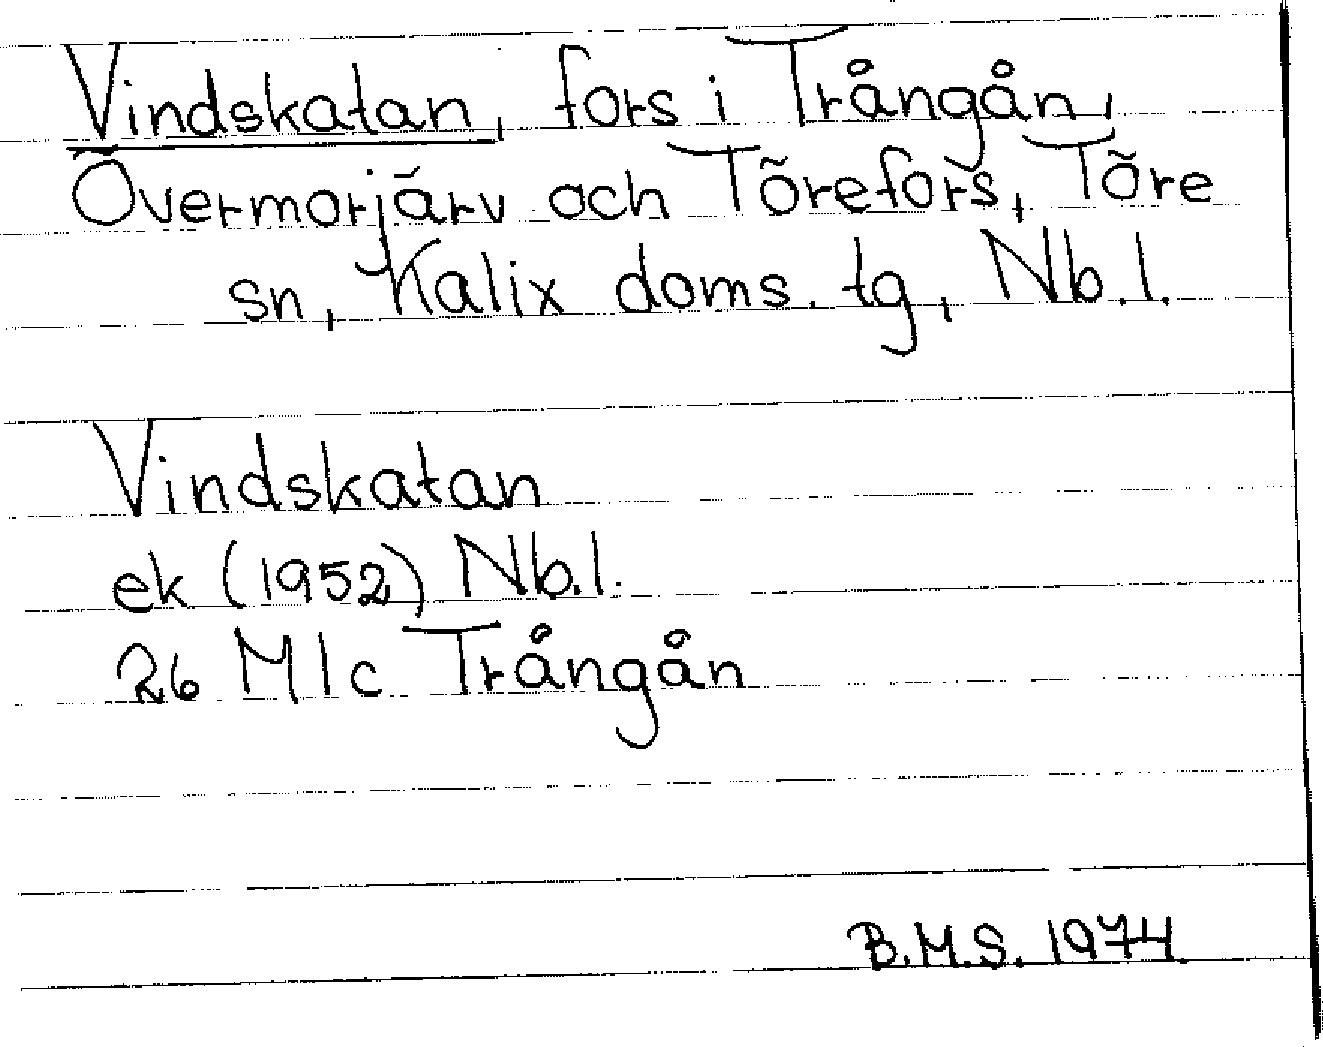 Vindskatan, fors i Trångån,
Övermorjärv och Törefors, Töre
sn, Kalix doms. tg, Nb.l.
Vindskatan
ek (1952) Nb.l.
26 M1c Trångån
B.M.S. 1974